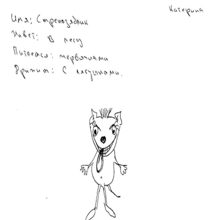 Катерина
Имя: Стреказяблик
Живёт: В лесу
Питается: червячками
Дружит: С лягушками.